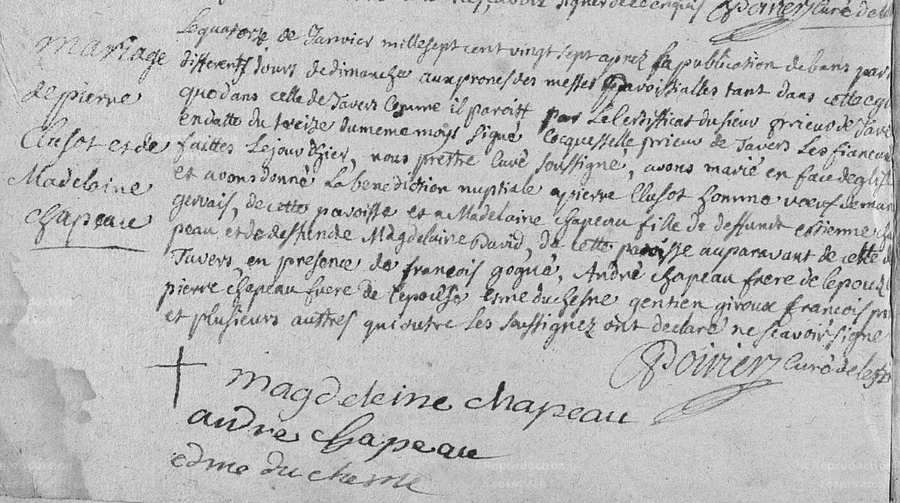 Poirier Curé de
mariage
de pierre
Clusot et de
Madelaine
chapeau
Le quatorze de Janvier mille sept cent vingt sept aprez la publication de bans par
differents jours de dimanche aux prones des messes Paroissialles tant dans cette eg
que dans celle de Tavers Comme il paroitt par le Certificat du sieur prieur de Tave
en datte du treize du meme moys signé Cocquestelle prieur de Tavers Les fiancia
faittes Le jour d'hier, nous prettre Curé soussigné, avons marié en face d'eglise
et avons donné La benediction nuptiale a pierre Clusot homme vœuf de mar
gervais, de cette paroisse et a Madelaine chapeau fille de deffunct etienne cha
peau et de deffuncte Magdelaine David, de cette paroisse auparavant de celle de
Tavers, en presence de françois gogué, André chapeau frere de l'epouse
pierre chapeau frere de l'epouse esme duchesne gentien giroux françois
et plusieurs auttres qui outre les soussignez ont declaré ne scavoir signe
Poirier Curé de
magdeleine chapeau
andre chapeau
edme du chesne